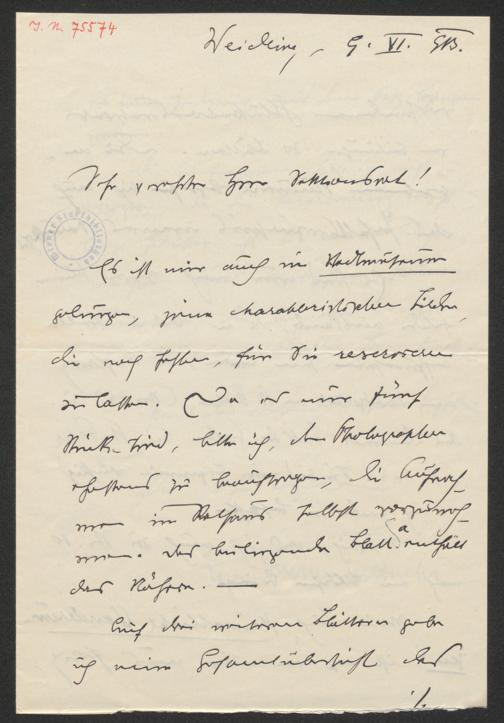 I. N. 75574
Weidling, 9. VI. 913.
Sehr verehrter Herr Sektionsrat!
Es ist mir auch im Stadtmuseum
gelungen, jene charakteristischen Bilder,
die noch fehlen, für Sie reservieren
zu lassen. Da es nur fünf
Stück sind, bitte ich, den Photographen
ehestens zu beauftragen, die Aufnah-
men im Rathaus selbst vorzuneh-
men. Das beiliegende Blatt a enthält
das Nähere. —
Auf drei weiteren Blättern gebe
ich eine Gesamtübersicht des